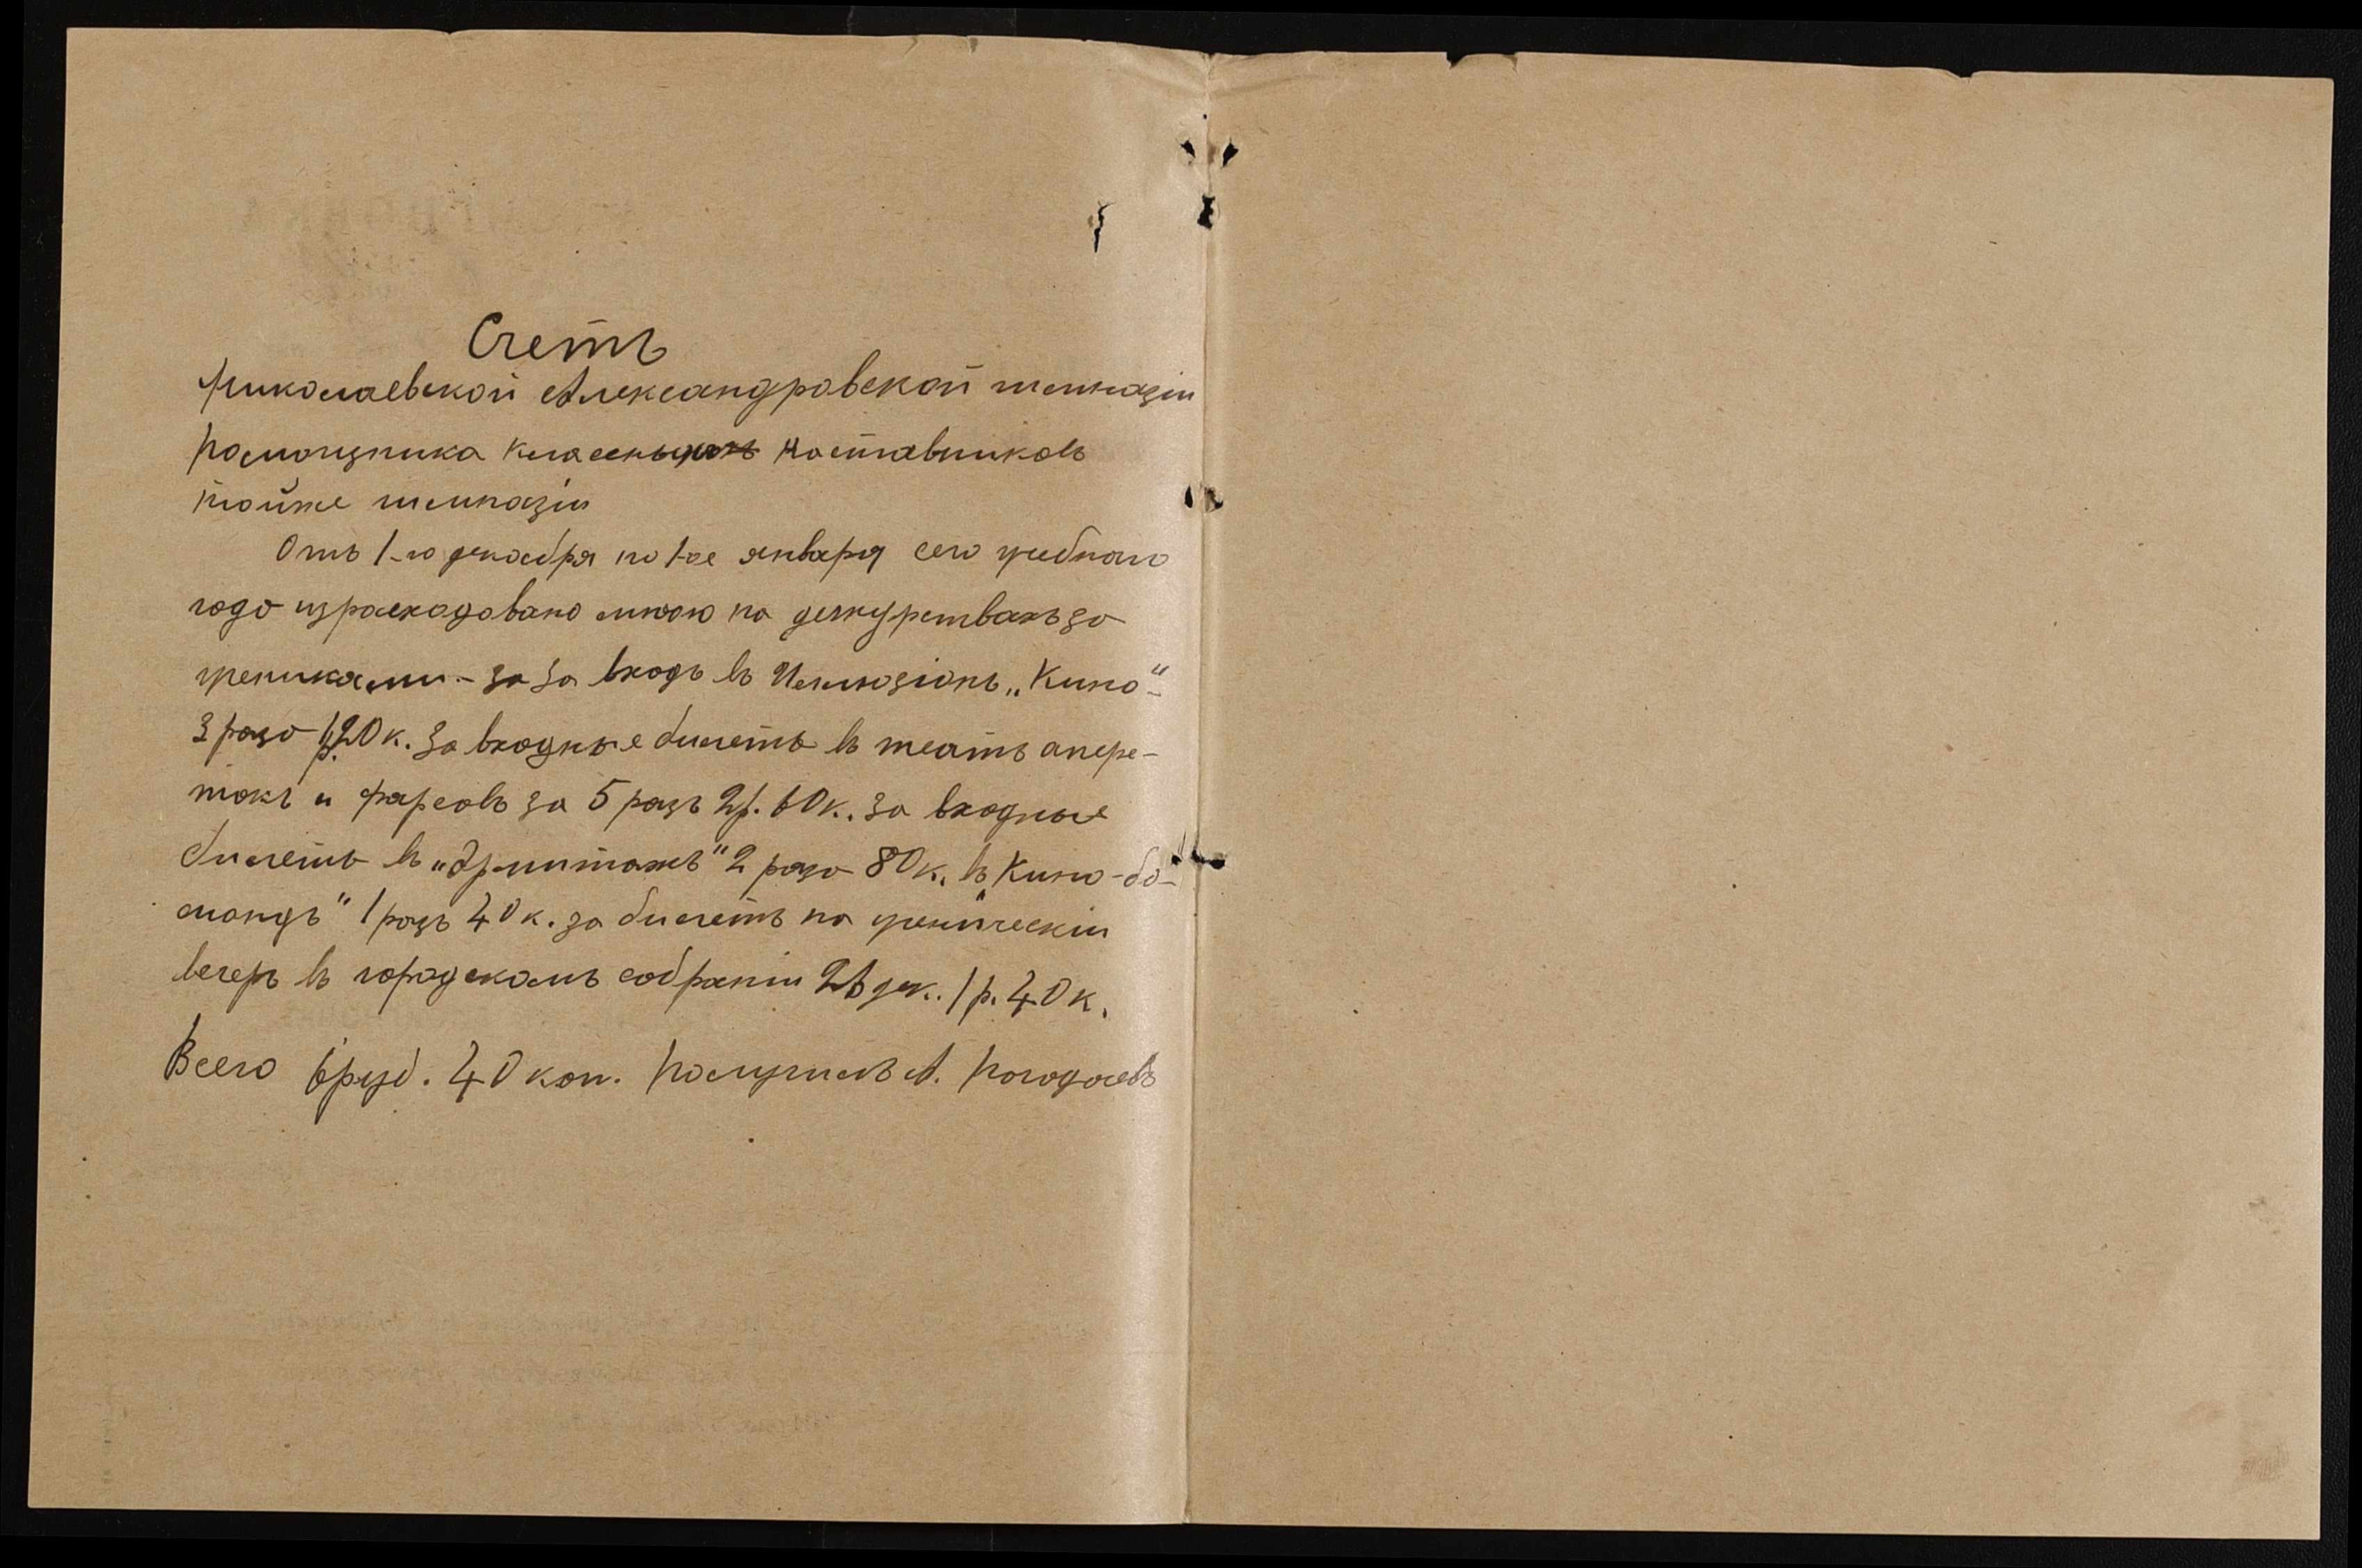 Счетъ
Николаевской Александровской гимназіи
Помощника классныхъ наставниковъ
тойже гимназіи
Отъ 1-го декабря по 1-ое января сего учебнаго
года израсходовано мною на дежурствахъ за
учениками - за за входъ въ Иллюзіонъ „Кино"-
3 раза 1 р. 20 к. За входные билеты въ театъ опере-
токъ и фарсовъ за 5 разъ 2 р. 60 к. за входные
билеты въ „Эрмитажъ" 2 раза 80 к. въ „Кино-бо-
мондъ" 1 разъ 40 к. за билетъ на ученическій
вечеръ въ городскомъ собраніи 26 дек. 1 р. 40 к.
Всего 6 руб. 40 коп. Получилъ А. Погодаевъ